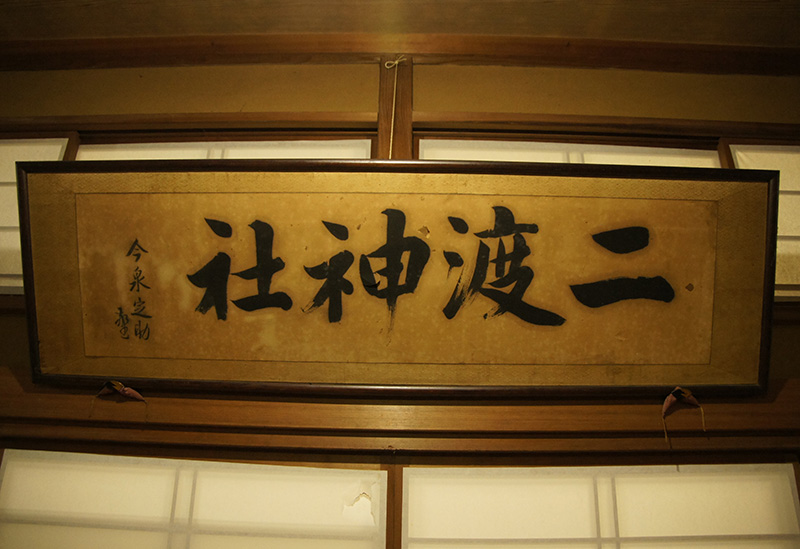 二渡神社
今泉定助